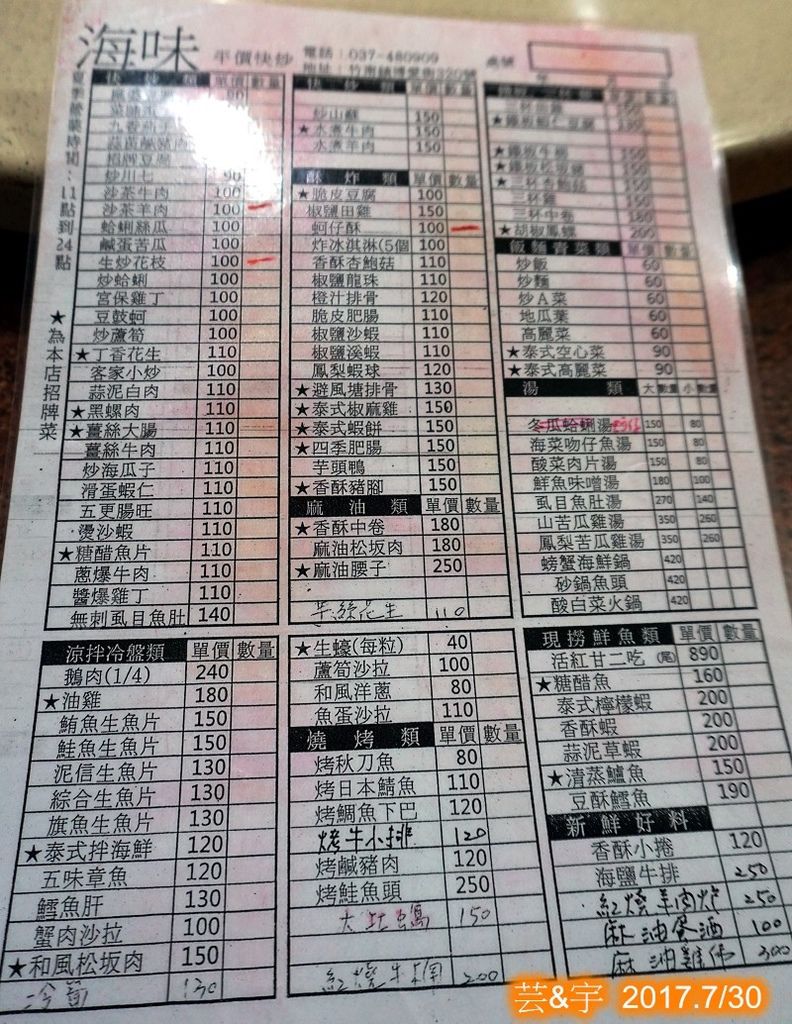 海味 平價快炒 電話:037-480909
地址:竹南鎮博愛街320號
桌號
夏季營業時間:11點到24點
★為本店招牌菜
快炒類 單價 數量
九香茄子
招牌豆腐
炒川七 90
沙茶牛肉 100
沙茶羊肉 100
蛤蜊絲瓜 100
鹹蛋苦瓜 100
生炒花枝 100
炒蛤蜊 100
宮保雞丁 100
豆鼓蚵 100
炒蘆筍 100
★丁香花生 110
客家小炒 100
蒜泥白肉 110
★黑螺肉 110
★薑絲大腸 110
薑絲牛肉 110
炒海瓜子 110
滑蛋蝦仁 110
五更腸旺 110
燙沙蝦 110
★糖醋魚片 110
蔥爆牛肉 110
醬爆雞丁 110
無刺虱目魚肚 140
快炒類 單價 數量
炒山蘇 150
★水煮牛肉 150
水煮羊肉 150
酥炸類 單價 數量
★脆皮豆腐 100
椒鹽田雞 150
蚵仔酥 100
炸冰淇淋(5個 100
香酥杏鮑菇 110
椒鹽龍珠 110
橙汁排骨 120
脆皮肥腸 110
椒鹽沙蝦 110
椒鹽溪蝦 110
鳳梨蝦球 120
★避風塘排骨 130
★泰式椒麻雞 150
★泰式蝦餅 150
★四季肥腸 150
芋頭鴨 150
★香酥豬腳 150
麻油類 單價 數量
★香酥中卷 180
麻油松坂肉 180
★麻油腰子 250
110
三杯田雞
★鐵板蝦仁豆腐
★鐵板牛柳 150
★鐵板松坂豬 150
★三杯杏鮑菇 150
三杯雞 150
三杯中卷 180
★胡椒鳳螺 200
飯麵青菜類 單價 數量
炒飯 60
炒麵 60
炒A菜 60
地瓜葉 60
高麗菜 60
★泰式空心菜 90
★泰式高麗菜 90
湯類 大 數量 小 數量
冬瓜蛤蜊湯 150 80
海菜吻仔魚湯 150 80
酸菜肉片湯 150 80
鮮魚味噌湯 180 100
虱目魚肚湯 270 140
山苦瓜雞湯 350 260
鳳梨苦瓜雞湯 350 260
螃蟹海鮮鍋 420
砂鍋魚頭 420
酸白菜火鍋 420
涼拌冷盤類 單價 數量
鵝肉(1/4) 240
★油雞 180
鮪魚生魚片 150
鮭魚生魚片 150
泥信生魚片 130
綜合生魚片 130
旗魚生魚片 130
★泰式拌海鮮 120
五味章魚 120
鱈魚肝 130
蟹肉沙拉 100
★和風松坂肉 150
冷筍 130
★生蠔(每粒) 40
蘆筍沙拉 100
和風洋蔥 80
魚蛋沙拉 110
燒烤類 單價 數量
烤秋刀魚 80
烤日本鯖魚 110
烤鯛魚下巴 120
烤牛小排 120
烤鹹豬肉 120
烤鮭魚頭 250
大牡蠣 150
紅燒牛腩 200
現撈鮮魚類 單價 數量
活紅甘二吃(尾) 890
★糖醋魚 160
泰式檸檬蝦 200
香酥蝦 200
蒜泥草蝦 200
★清蒸鱸魚 150
豆酥鱈魚 190
新鮮好料
香酥小捲 120
海鹽牛排 250
紅燒羊肉爐 250
麻油蛋酒 100
麻油雞佛 300
芸&宇 2017.7/30